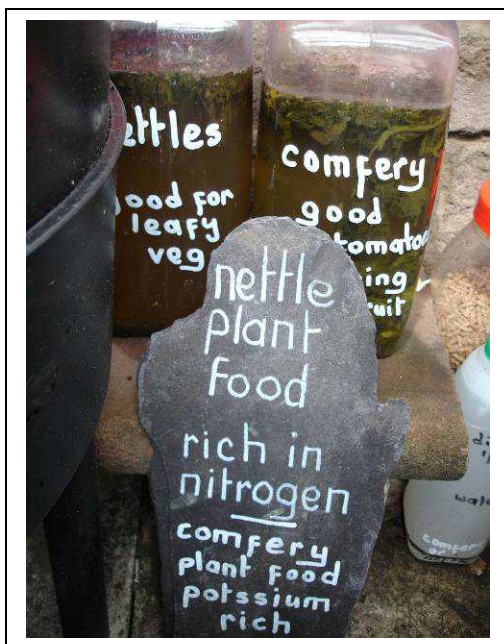 ettles
good for
leafy
veg
comfery
good
tomato
ing
ruit
nettle
plant
food
rich in
nitrogen
comfery
plant food
potssium
rich
di
wat
comfery